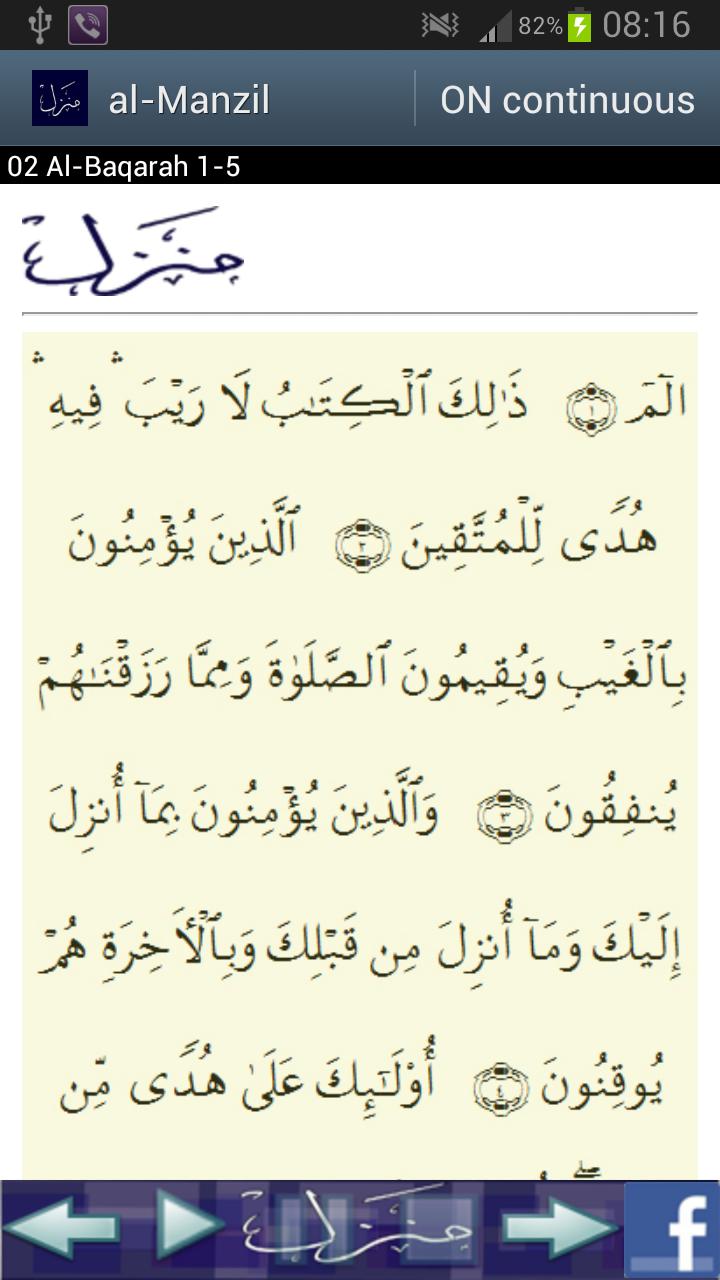 82% 08:16
al-Manzil
ON continuous
02 Al-Baqarah 1-5
منزل
الٓمٓ ١ ذَٰلِكَ ٱلْكِتَـٰبُ لَا رَيْبَ ۛ فِيهِ ۛ
هُدًى لِّلْمُتَّقِينَ ٢ ٱلَّذِينَ يُؤْمِنُونَ
بِٱلْغَيْبِ وَيُقِيمُونَ ٱلصَّلَوٰةَ وَمِمَّا رَزَقْنَـٰهُمْ
يُنفِقُونَ ٣ وَٱلَّذِينَ يُؤْمِنُونَ بِمَآ أُنزِلَ
إِلَيْكَ وَمَآ أُنزِلَ مِن قَبْلِكَ وَبِٱلْأَخِرَةِ هُمْ
يُوقِنُونَ ٤ أُوْلَـٰٓئِكَ عَلَىٰ هُدًى مِّن
منزل
f